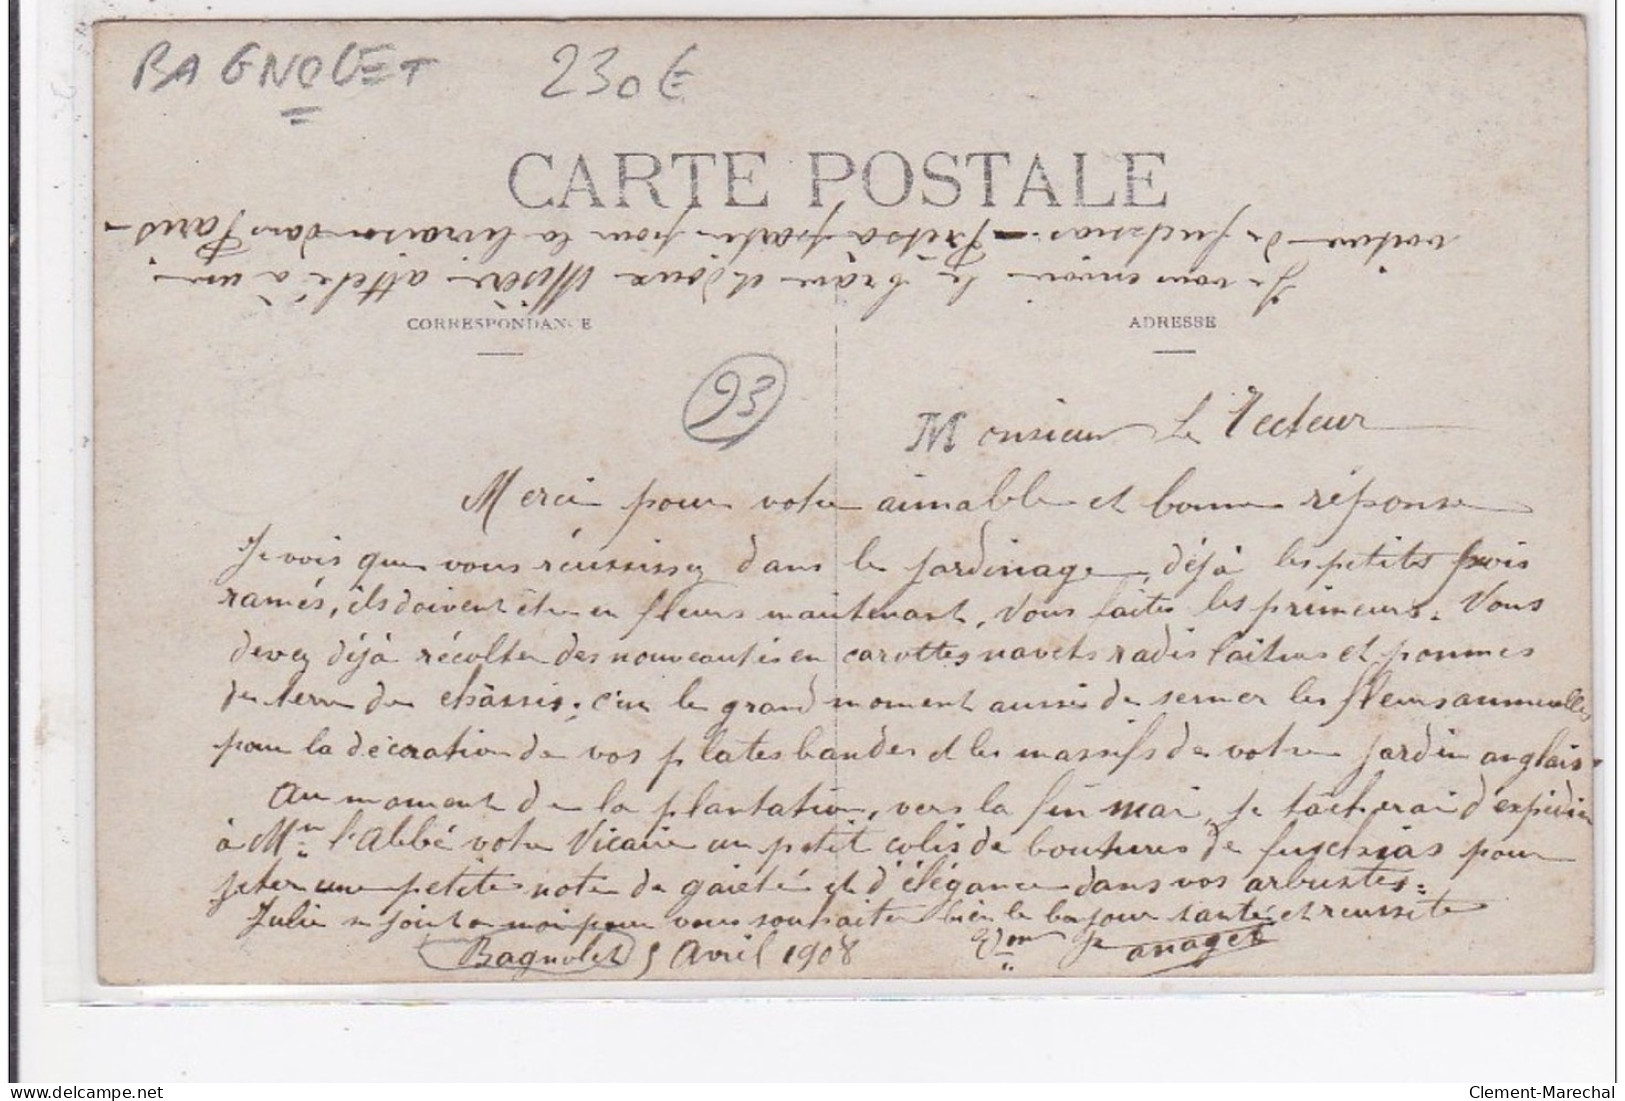 BAGNOLET 230€
CARTE POSTALE
Je vous envoie le brave et doux Misère attelé à une
voiture de fuchsias. Prêts à partir pour la livraison dans Paris.
CORRESPONDANCE
ADRESSE
93
Monsieur Le Recteur
Merci pour votre aimable et bonne réponse
Je vois que vous réussissez dans le jardinage, déjà les petits pois
ramés, ils doivent être en fleurs maintenant. Vous faites les primeurs. Vous
devez déjà récolter des nouveautés en carottes navets radis laitues et pommes
de terre de châssis; c'est le grand moment aussi de semer les fleurs annuelles
pour la décoration de vos plates bandes et les massifs de votre jardin anglais.
Au moment de la plantation, vers la fin mai, je tâcherai d'expédier
à Mr l'Abbé votre Vicaire un petit colis de boutures de fuschias pour
jeter une petite note de gaieté et d'élégance dans vos arbustes.
Julie se joint à moi pour vous souhaiter bien le bonjour santé et réussite
Bagnolet 5 Avril 1908
delcampe.net
Clement-Marechal